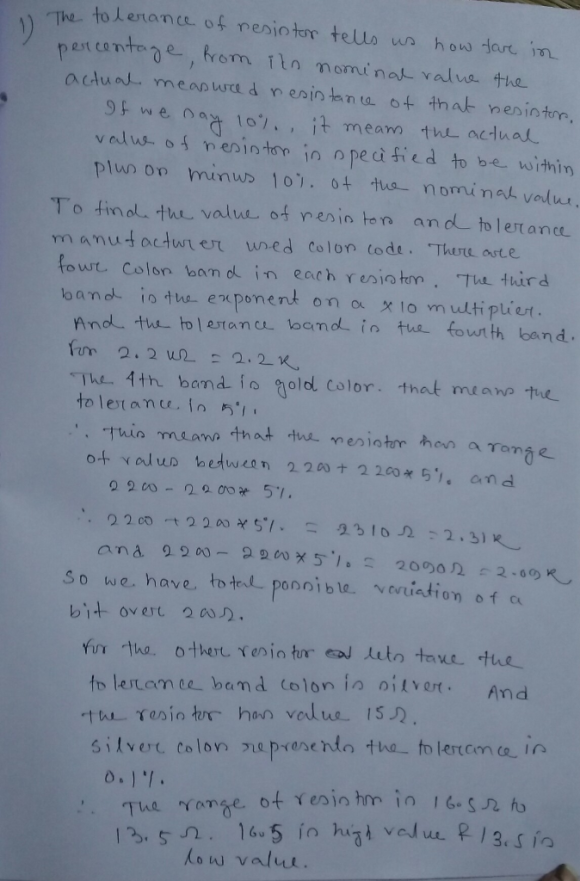 1) The tolerance of resistor tells us how far in
percentage, from its nominal value the
actual measured resistance of that resistor.
If we say 10%., it means the actual
value of resistor is specified to be within
plus or minus 10%. of the nominal value.
To find the value of resistors and tolerance
manufacturer used color code. There are
four color band in each resistor. The third
band is the exponent on a x10 multiplier.
And the tolerance band is the fourth band.
For 2.2 kΩ = 2.2K
The 4th band is gold color. that means the
tolerance is 5%.
∴ This means that the resistor has a range
of values between 2200 + 2200 * 5%. and
2200 - 2200 * 5%.
∴ 2200 + 2200 * 5%. = 2310 Ω = 2.31K
and 2200 - 2200 x 5%. = 2090Ω = 2.09K
So we have total possible variation of a
bit over 200Ω.
For the other resistor lets take the
tolerance band color is silver. And
the resistor has value 15Ω.
Silver color represents the tolerance is
0.1%.
∴ The range of resistor is 16.5Ω to
13.5 Ω. 16.5 is high value & 13.5 is
low value.